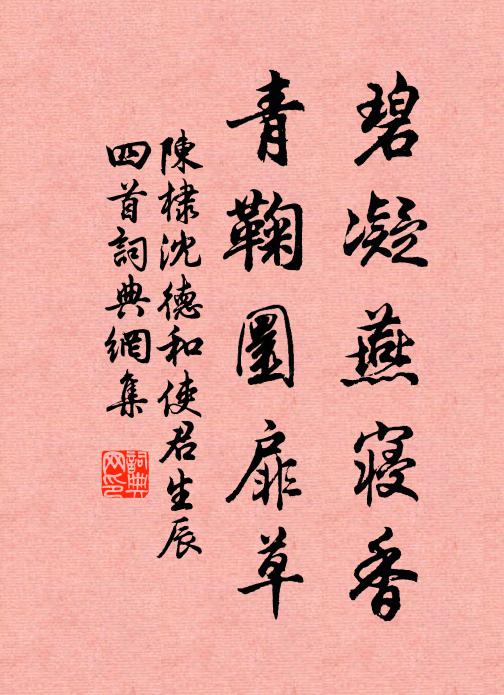 碧凝燕寢香
青鞠圜扉草
陳棣沈德和使君生辰
四首詞典網集
詞典
网印